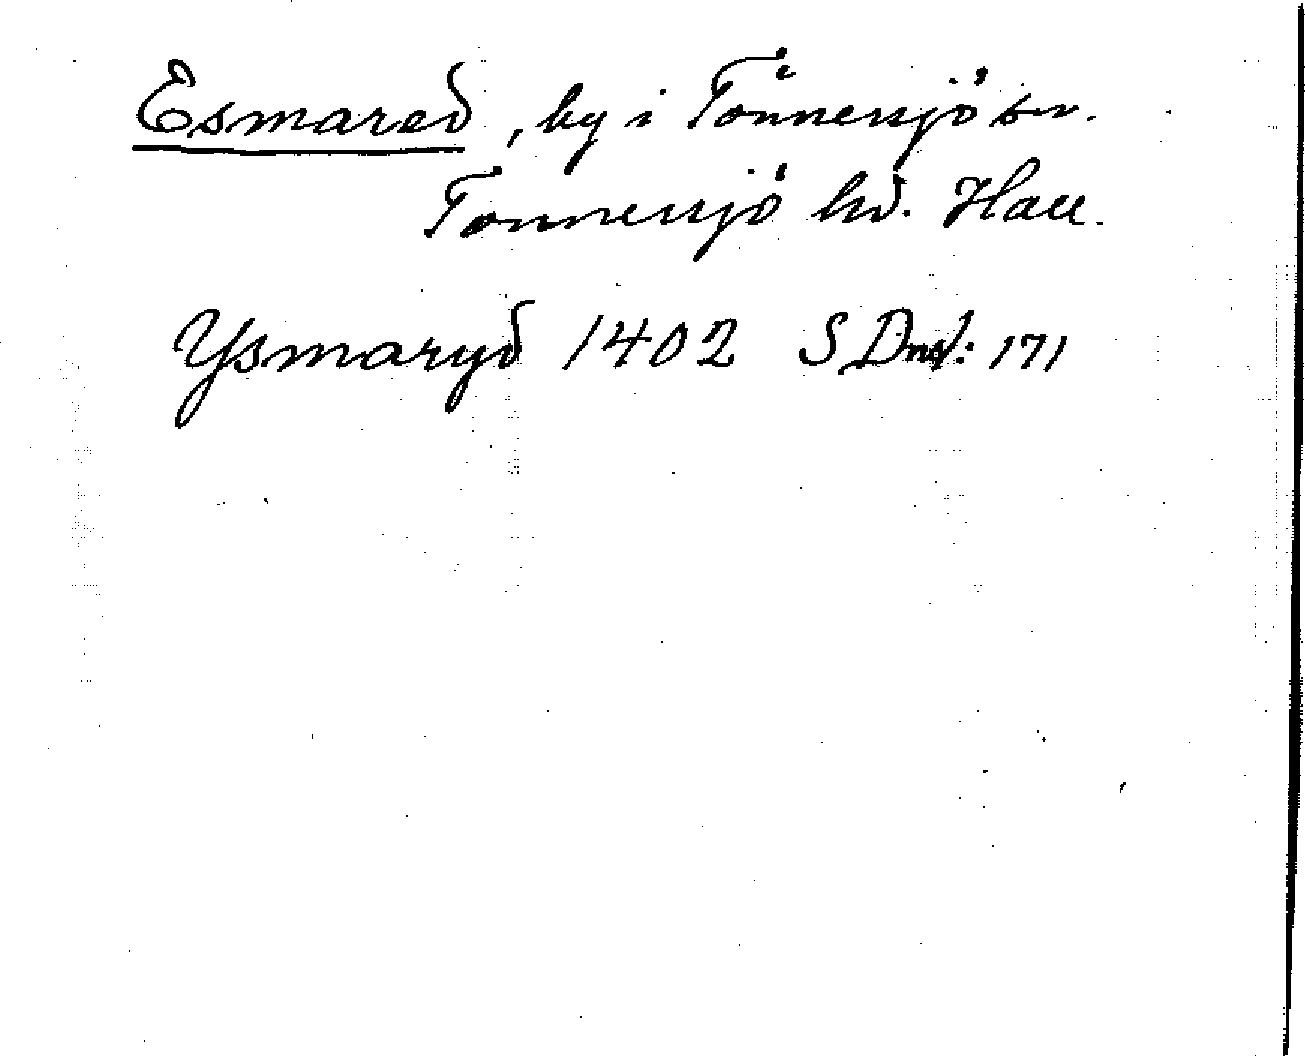 Esmared, by i Tönnersjö sn.
Tönnersjö hd. Hall.
Ysmaryd 1402 SDns1: 171